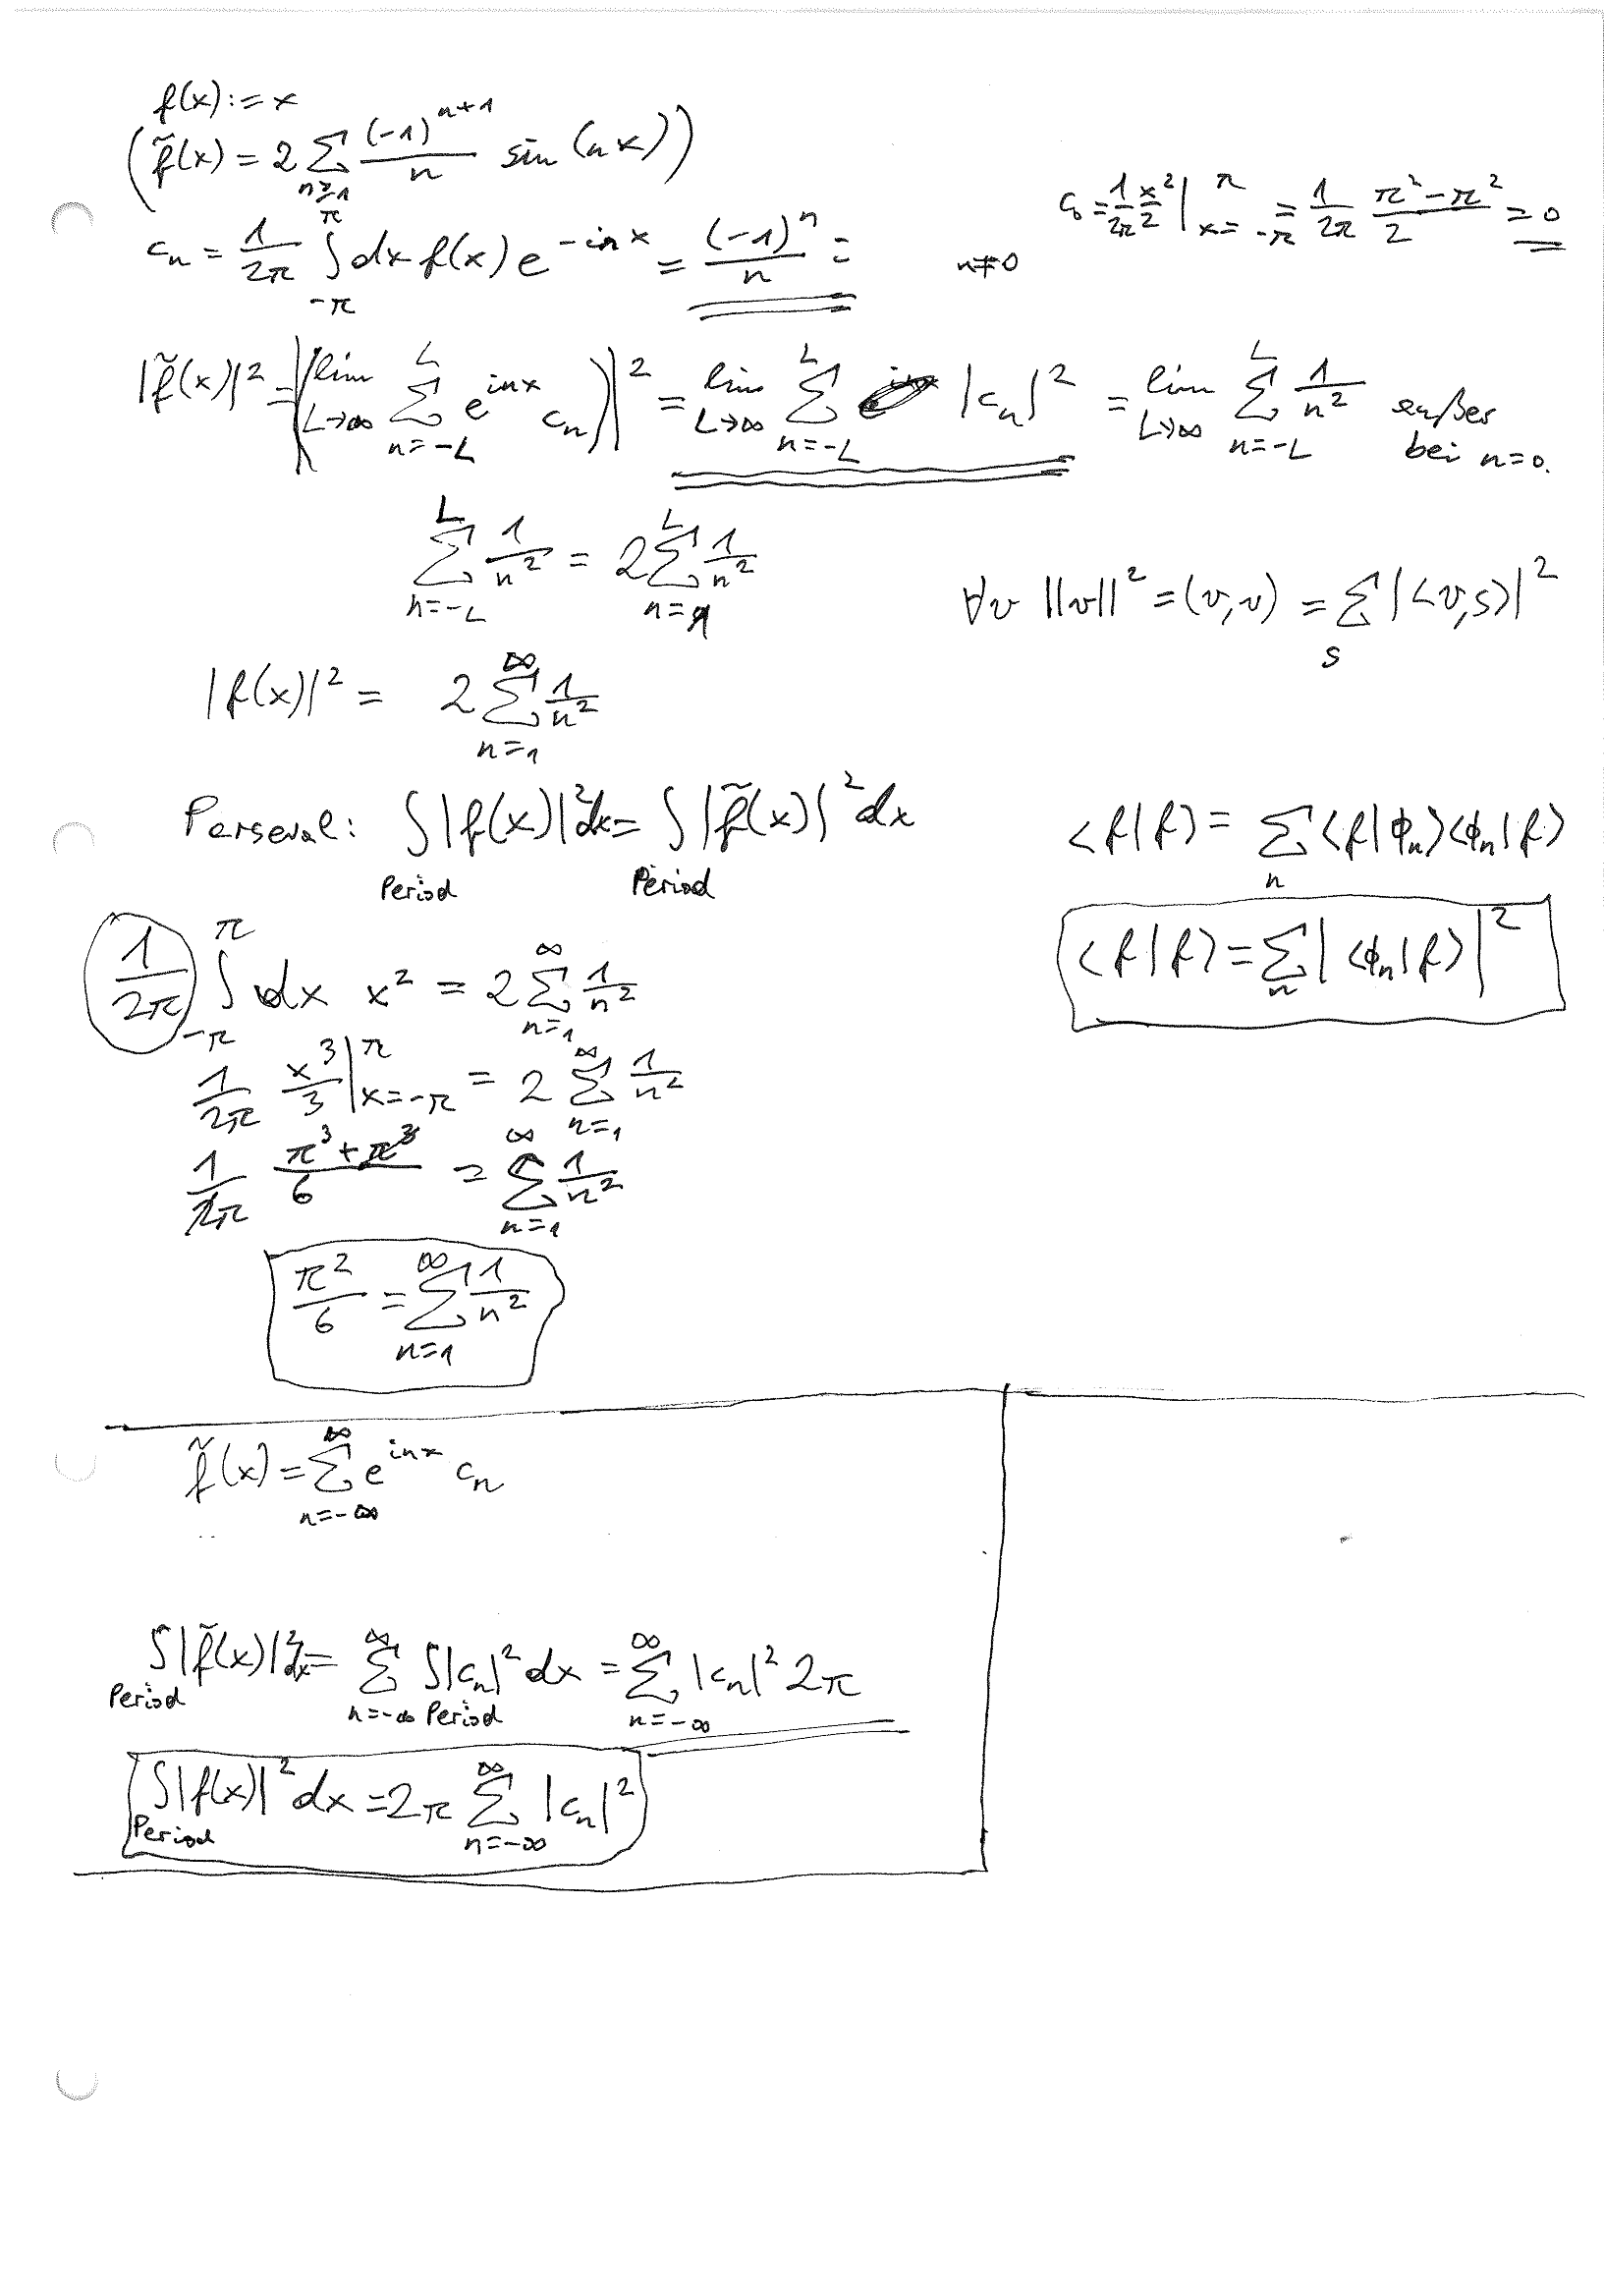 f(x) := x
(f̃(x) = 2 ∑_{n≥1} (-1)^{n+1}/n sin(nx))
c_0 = 1/2π x²/2 |_{x=-π}^{π} = 1/2π (π²-π²)/2 = 0
c_n = 1/2π ∫_{-π}^{π} dx f(x) e^{-inx} = (-1)^n/n = n≠0
|f̃(x)|² = |(lim_{L→∞} ∑_{n=-L}^{L} e^{inx} c_n)|² = lim_{L→∞} ∑_{n=-L}^{L} |c_n|² = lim_{L→∞} ∑_{n=-L}^{L} 1/n² außer bei n=0.
∑_{n=-L}^{L} 1/n² = 2 ∑_{n=1}^{L} 1/n²
∀v ||v||² = (v,v) = ∑_s |<v,s>|²
|f(x)|² = 2 ∑_{n=1}^{∞} 1/n²
Parseval: ∫_{Period} |f(x)|² dx = ∫_{Period} |f̃(x)|² dx
<f|f> = ∑_n <f|ϕ_n><ϕ_n|f>
<f|f> = ∑_n |<ϕ_n|f>|²
1/2π ∫_{-π}^{π} dx x² = 2 ∑_{n=1}^{∞} 1/n²
1/2π x³/3 |_{x=-π}^{π} = 2 ∑_{n=1}^{∞} 1/n²
1/2π (π³+π³)/6 = ∑_{n=1}^{∞} 1/n²
π²/6 = ∑_{n=1}^{∞} 1/n²
f̃(x) = ∑_{n=-∞}^{∞} e^{inx} c_n
∫_{Period} |f̃(x)|² dx = ∑_{n=-∞}^{∞} ∫_{Period} |c_n|² dx = ∑_{n=-∞}^{∞} |c_n|² 2π
∫_{Period} |f(x)|² dx = 2π ∑_{n=-∞}^{∞} |c_n|²